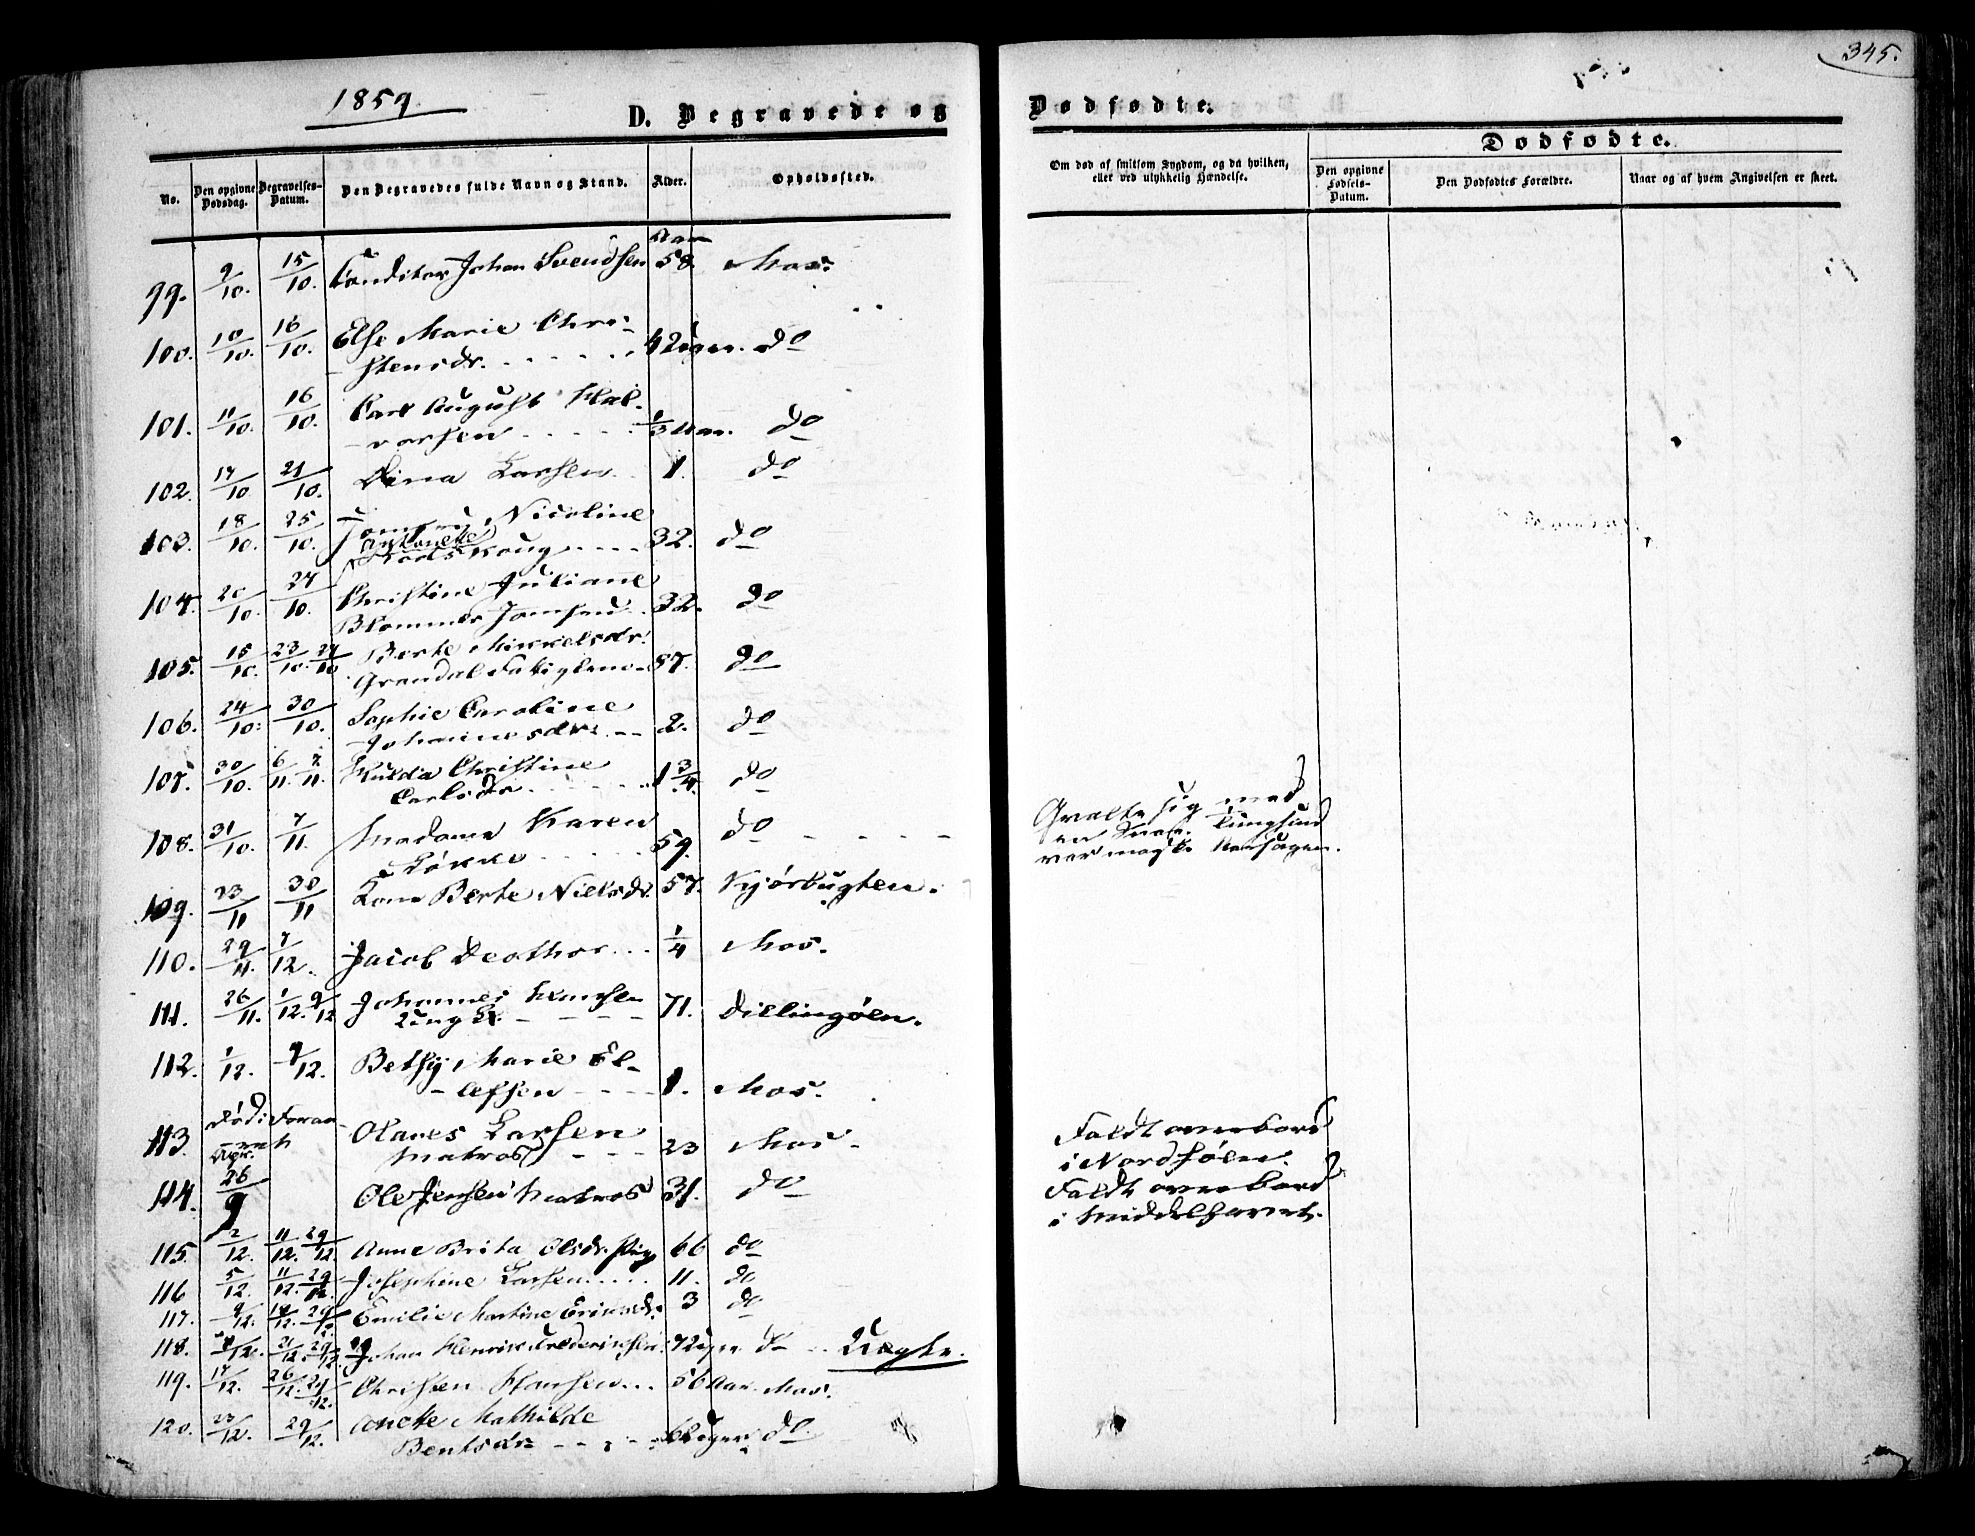 345.
1859.
D. Begravede og Dødfødte.
No.
Den opgivne Dødsdag.
Begravelses-Datum.
Den Begravedes fulde Navn og Stand.
Alder.
Opholdssted.
Om død af smitsom Sygdom, og da hvilken, eller ved ulykkelig Hændelse.
Dødfødte.
Den opgivne Fødsels-Datum.
Den Dødfødtes Forældre.
Naar og af hvem Angivelsen er skeet.
99. 9/10. 15/10. Conditor Johan Svendsen 58 Aar Mos.
100. 10/10. 16/10. Else Marie Chri-
stensdr. Uger. do
101. 11/10. 16/10. Carl August Hal-
vorsen 1/3 Aar. do
102. 17/10. 21/10. Dina Larsen 1. do
103. 18/10. 25/10. Jomfru Nicoline
Antonette
32. do
104. 20/10. 27/10. Christine Juliane
Blommer Jomfru 32. do
105. 15/10. 23/10. 27/10 Berte Mikkelsdr.
Grendal Fattiglem 87. do
106. 24/10. 30/10. Sophie Caroline
Johannesdr. 2. do
107. 30/10. 6/11. 7/11. Hulda Christine
Carlsdr. 1 3/4. do
108. 31/10. 7/11. Madame Karen
Løkke 59. do
med
en
109. 23/11 30/11 Kone Berte Nielsdr. 57. Kjørbugten.
110. 29/11. 7/12. Jacob 1/4 Mos.
111. 26/11. 1/12. 9/12 Johannes Hansen
71. Dillingøen.
112. 1/12. 9/12. Betsy Marie El-
lefsen 1. Mos.
113. Død i Foraaret
Olaves Larsen
Matros 23 Mos.
Faldt overbord
i Nordsøen.
114. 26/9 Ole Jensen Matros 31. do
Faldt overbord
i Middelhavet.
115. 2/12. 11/12. 29/12. Anne Brita Olsdr. Pige 66 do
116 5/12. 11/12. 29/12. Josephine Larsen 11. do
117. 9/12. 14/12. 29/12. Emilie Martine Eriksdr. 3 do
118. 21/12 29/12. Johan Henrik Frederiksen 7 Uger do
119. 17/12. 26/12. 29/12. Christen Hansen 56 Aar. Mos.
120. 23/12. 29/12. Mathilde
Bentsdr. Uger do.